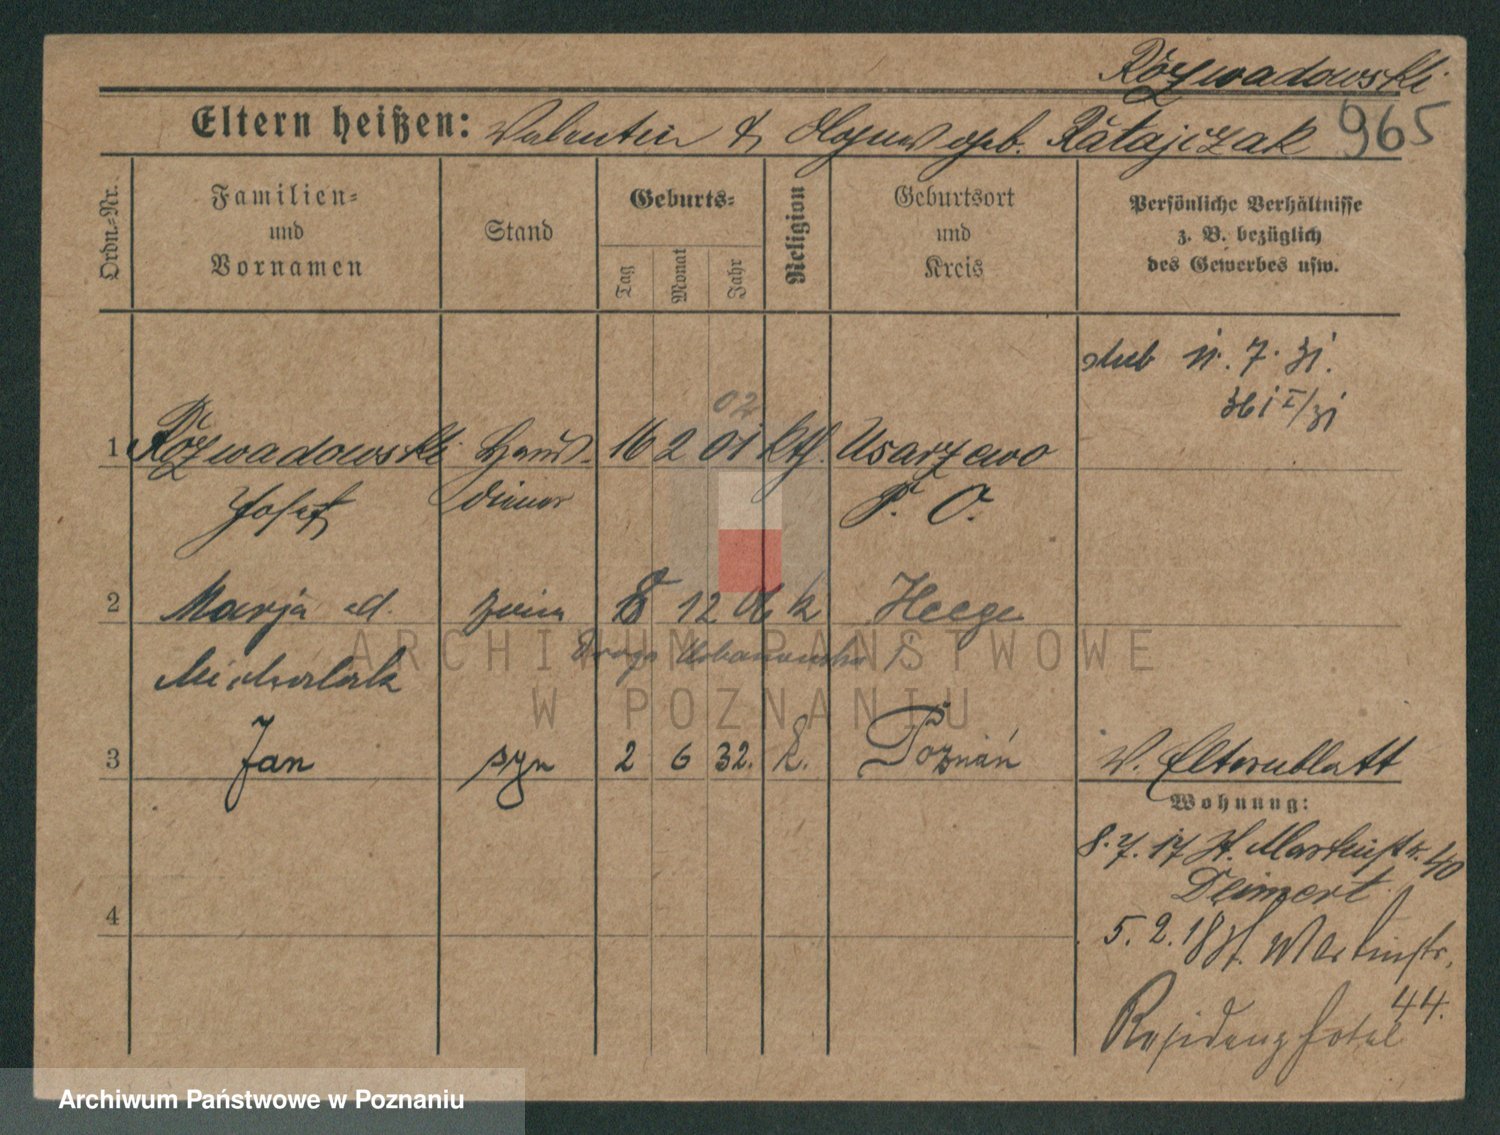 Rózwadowski
965
Eltern heißen: Valentin & geb. Ratajczak
Ordn.-Nr.
Familien-
und
Vornamen
Stand
Geburts-
Tag
Monat
Jahr
Religion
Geburtsort
und
Kreis
Persönliche Verhältnisse
z. B. bezüglich
des Gewerbes usw.
7. 31.
02
1 Rózwadowski Haus- 16 2 01 kth. Usarzewo
Josef diener P. O.
2 Marja 8 12 06 k
Droga Urbanowska
Michalak
3 Jan syn 2 6 32. k. Poznań
V. Elternblatt
Wohnung:
8. 7. 17 St. Martinstr. 40
5. 2. 18 St. Martinstr.
44.
Residenz Hotel
4
ARCHIWUM PAŃSTWOWE
W POZNANIU
Archiwum Państwowe w Poznaniu